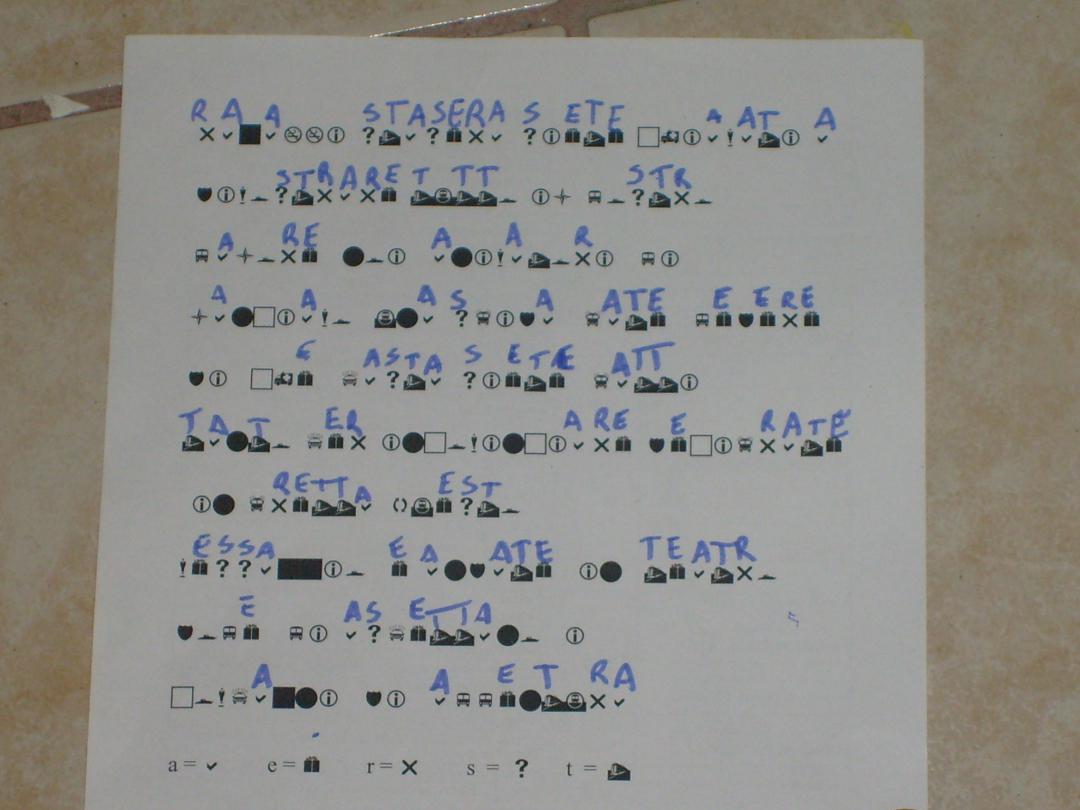 R A A STASERA S ETE A AT A
STRARE T TT STR
A RE A A R
A A A S A ATE E E RE
E ASTA S ETE ATT
TA T ER A RE E RATE
RETTA EST
ESSA E A ATE TEATR
E AS ETTA
A A E T RA
a = ✓ e = r = ✕ s = ? t =